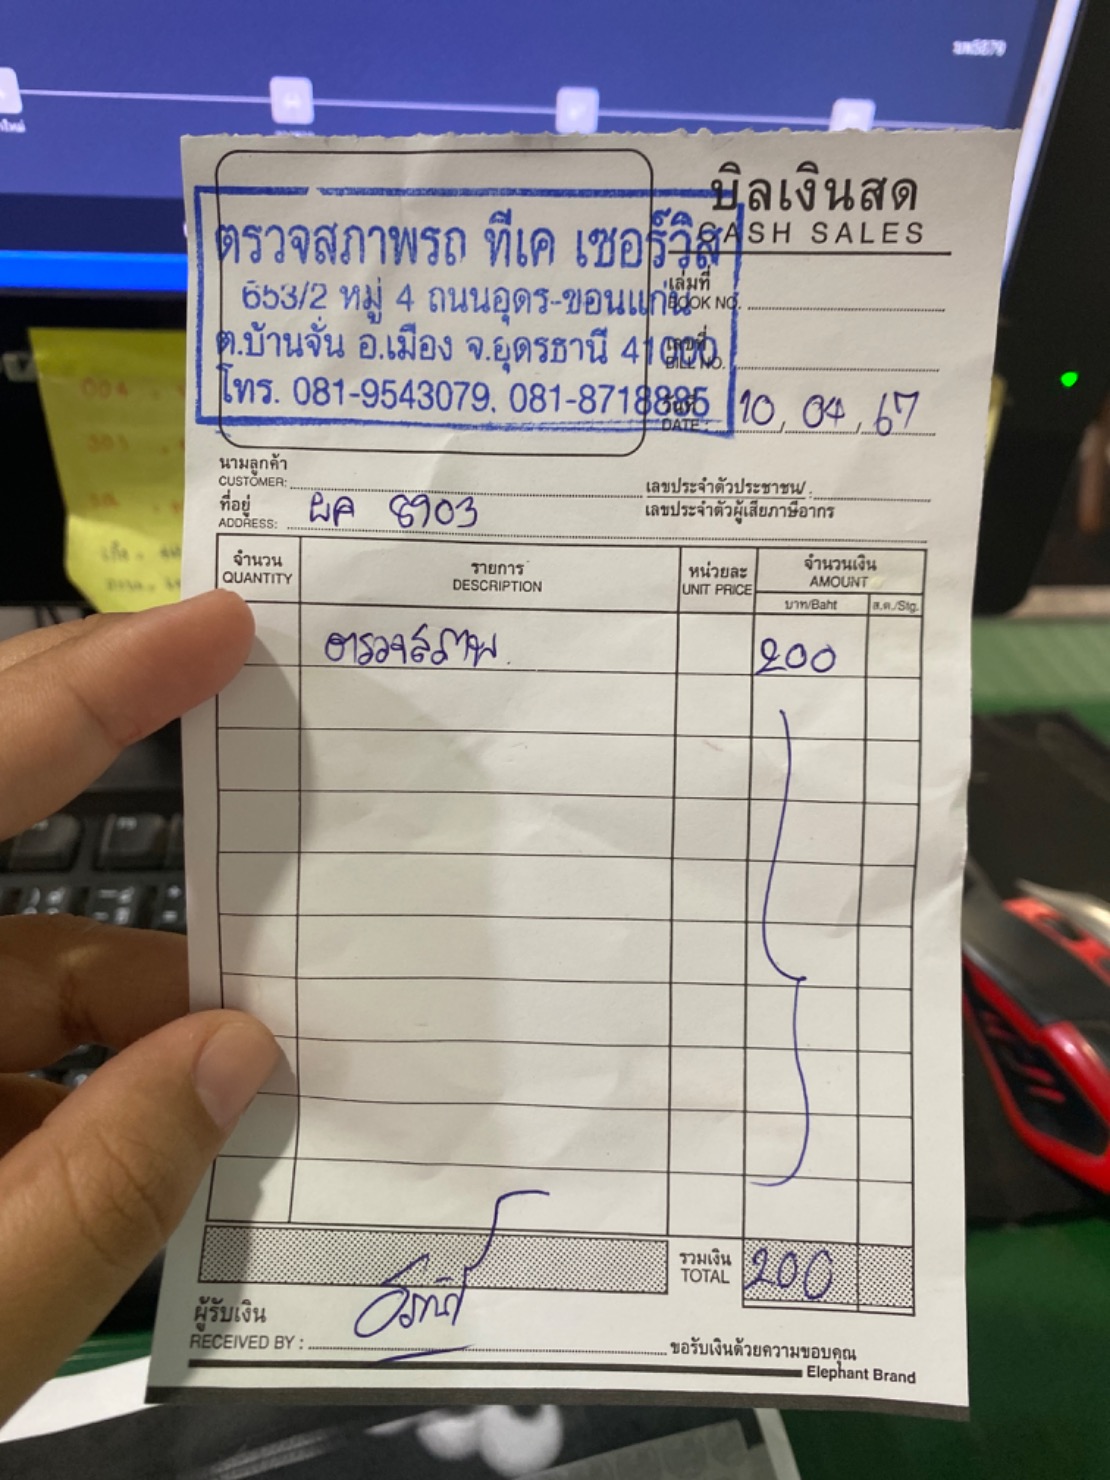 บิลเงินสด
CASH SALES
ตรวจสภาพรถ ทีเค เซอร์วิส
653/2 หมู่ 4 ถนนอุดร-ขอนแก่น
ต.บ้านจั่น อ.เมือง จ.อุดรธานี 41000
โทร. 081-9543079, 081-8718885
เล่มที่
BOOK NO.
เลขที่
BILL NO.
วันที่
DATE : 10, 04, 67
นามลูกค้า
CUSTOMER:
เลขประจำตัวประชาชน/ :
เลขประจำตัวผู้เสียภาษีอากร
ที่อยู่
ADDRESS: ผค 8903
จำนวน
QUANTITY
รายการ
DESCRIPTION
หน่วยละ
UNIT PRICE
จำนวนเงิน
AMOUNT
บาท/Baht ส.ต./Stg.
ตรวจสภาพ 200
รวมเงิน
TOTAL 200
ผู้รับเงิน
RECEIVED BY :
ขอรับเงินด้วยความขอบคุณ
Elephant Brand